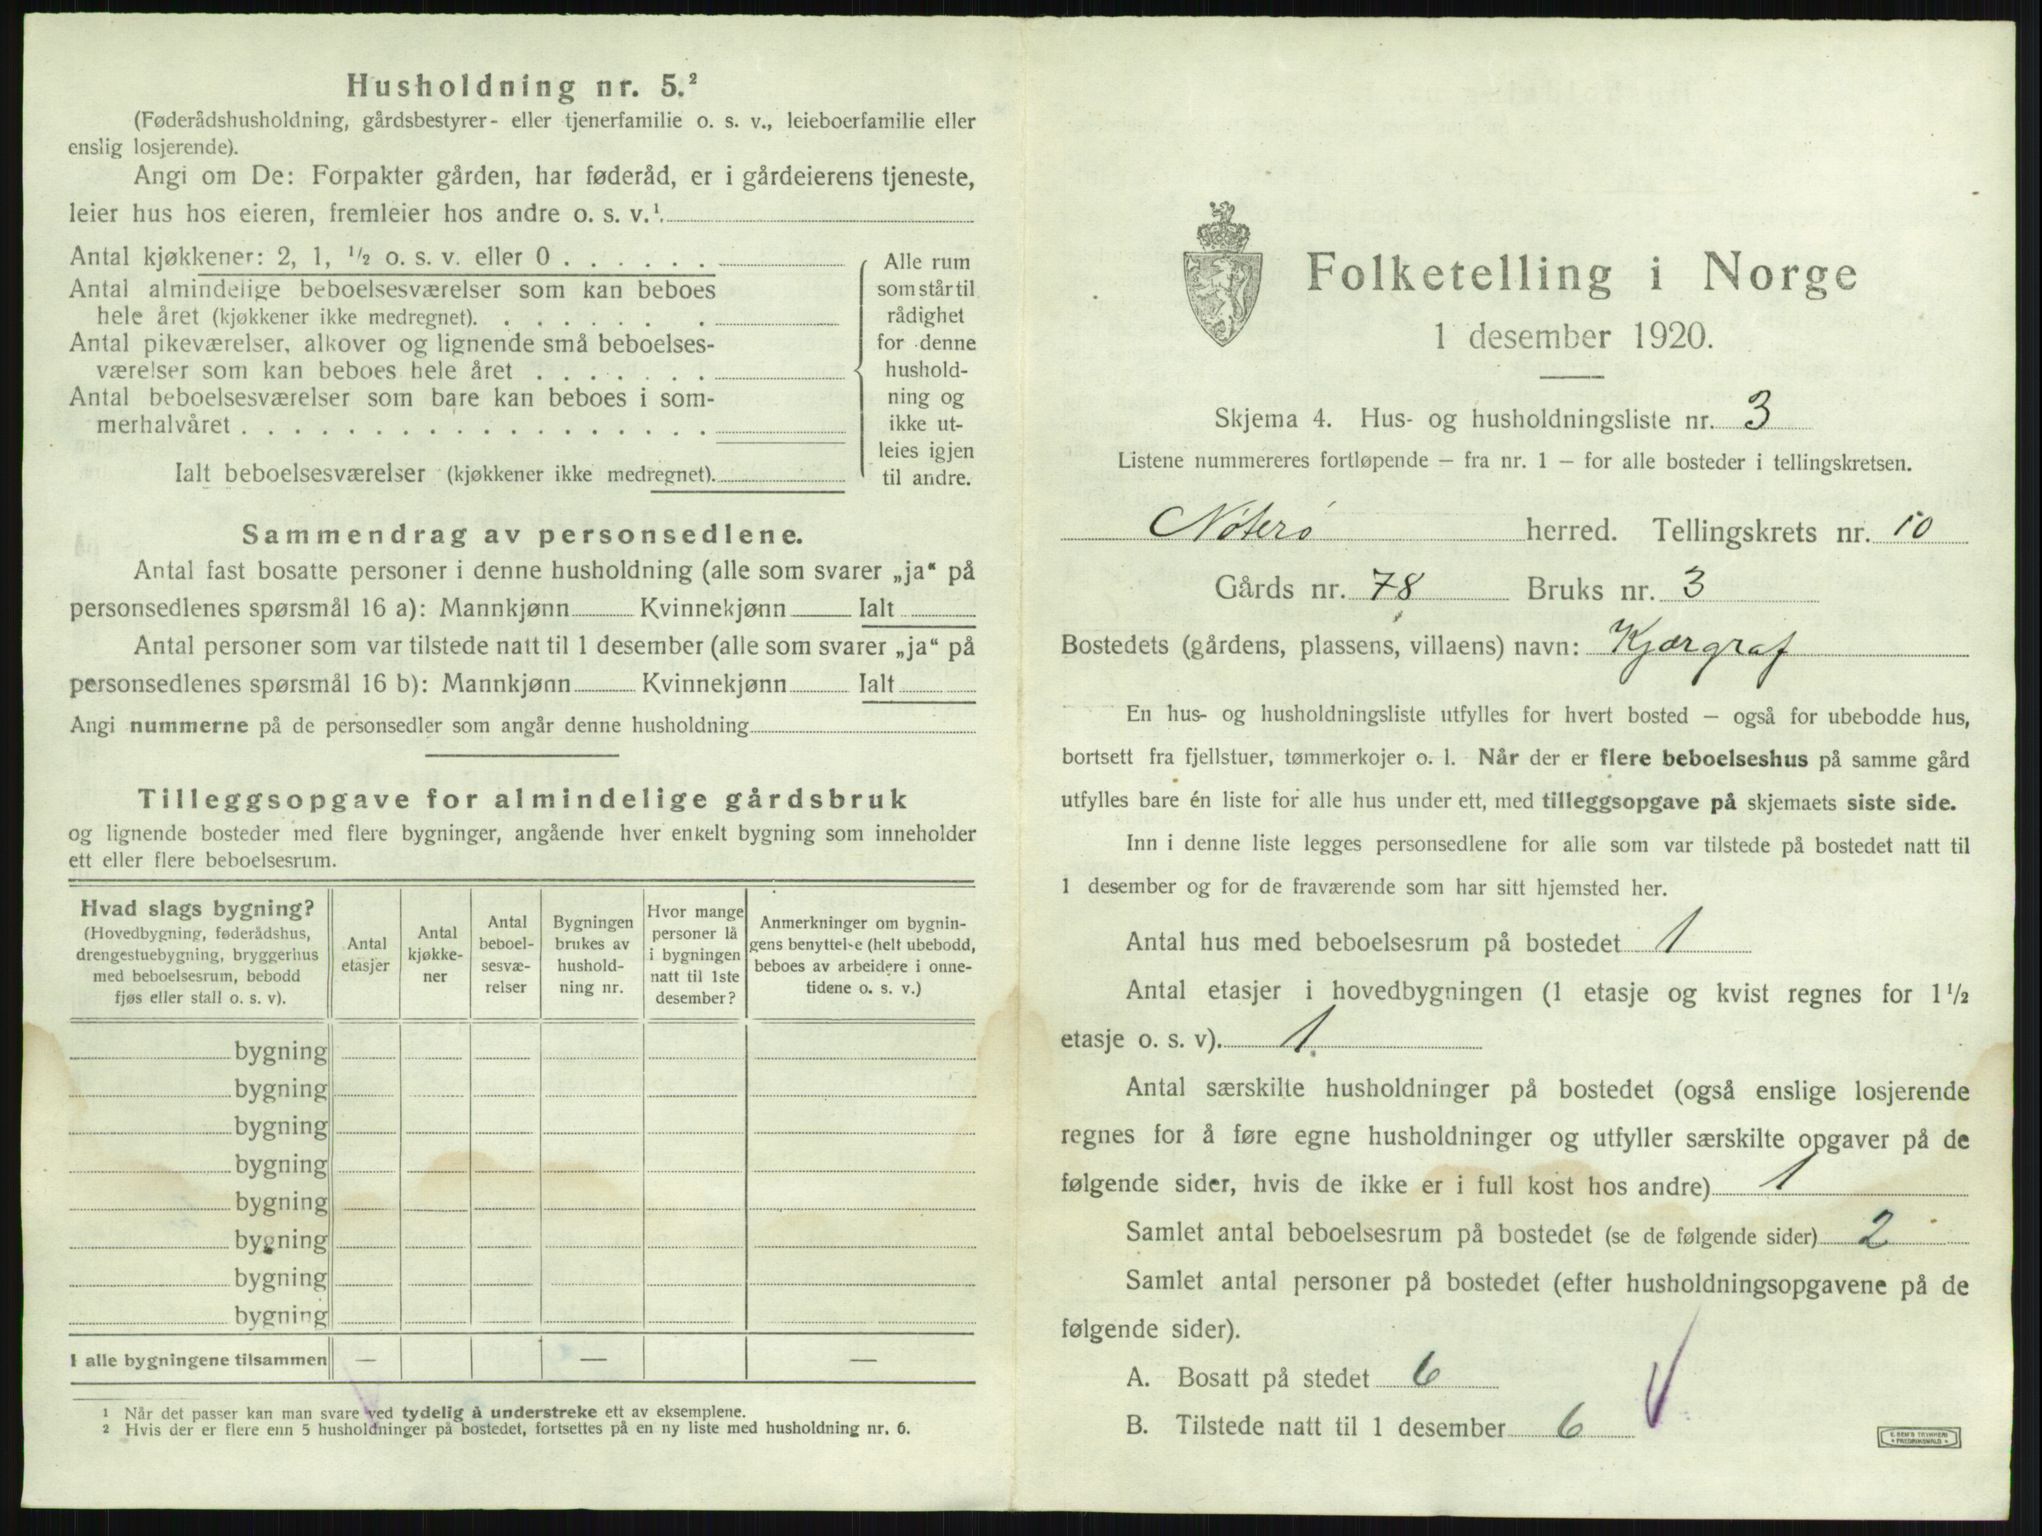 Husholdning nr. 5.²
(Føderådshusholdning, gårdsbestyrer- eller tjenerfamilie o. s. v., leieboerfamilie eller
enslig losjerende).
Angi om De: Forpakter gården, har føderåd, er i gårdeierens tjeneste,
leier hus hos eieren, fremleier hos andre o. s. v.¹
Antal kjøkkener: 2, 1, ½ o. s. v. eller 0 . . . . . .
Antal almindelige beboelsesværelser som kan beboes
hele året (kjøkkener ikke medregnet). . . . . . . . .
Antal pikeværelser, alkover og lignende små beboelses-
værelser som kan beboes hele året . . . . . . .
Antal beboelsesværelser som bare kan beboes i som-
merhalvåret . . . . . . . . . . . . . . . . . .
Ialt beboelsesværelser (kjøkkener ikke medregnet).
Alle rum
som står til
rådighet
for denne
hushold-
ning og
ikke ut-
leies igjen
til andre.
Sammendrag av personsedlene.
Antal fast bosatte personer i denne husholdning (alle som svarer „ja“ på
personsedlenes spørsmål 16 a): Mannkjønn Kvinnekjønn Ialt
Antal personer som var tilstede natt til 1 desember (alle som svarer „ja“ på
personsedlenes spørsmål 16 b): Mannkjønn Kvinnekjønn Ialt
Angi nummerne på de personsedler som angår denne husholdning
Tilleggsopgave for almindelige gårdsbruk
og lignende bosteder med flere bygninger, angående hver enkelt bygning som inneholder
ett eller flere beboelsesrum.
Hvad slags bygning?
(Hovedbygning, føderådshus,
drengestuebygning, bryggerhus
med beboelsesrum, bebodd
fjøs eller stall o. s. v).
Antal
etasjer
Antal
kjøkke-
ner
Antal
beboel-
sesvæ-
relser
Bygningen
brukes av
hushold-
ning nr.
Hvor mange
personer lå
i bygningen
natt til 1ste
desember?
Anmerkninger om bygnin-
gens benyttelse (helt ubebodd,
beboes av arbeidere i onne-
tidene o. s. v.)
bygning
bygning
bygning
bygning
bygning
bygning
bygning
bygning
I alle bygningene tilsammen — — —
¹ Når det passer kan man svare ved tydelig å understreke ett av eksemplene.
² Hvis der er flere enn 5 husholdninger på bostedet, fortsettes på en ny liste med husholdning nr. 6.
Folketelling i Norge
1 desember 1920.
Skjema 4. Hus- og husholdningsliste nr. 3
Listene nummereres fortløpende – fra nr. 1 – for alle bosteder i tellingskretsen.
Nøterø herred. Tellingskrets nr. 10
Gårds nr. 78 Bruks nr. 3
Bostedets (gårdens, plassens, villaens) navn: Kjærgraf
En hus- og husholdningsliste utfylles for hvert bosted – også for ubebodde hus,
bortsett fra fjellstuer, tømmerkojer o. l. Når der er flere beboelseshus på samme gård
utfylles bare én liste for alle hus under ett, med tilleggsopgave på skjemaets siste side.
Inn i denne liste legges personsedlene for alle som var tilstede på bostedet natt til
1 desember og for de fraværende som har sitt hjemsted her.
Antal hus med beboelsesrum på bostedet 1
Antal etasjer i hovedbygningen (1 etasje og kvist regnes for 1½
etasje o. s. v). 1
Antal særskilte husholdninger på bostedet (også enslige losjerende
regnes for å føre egne husholdninger og utfyller særskilte opgaver på de
følgende sider, hvis de ikke er i full kost hos andre) 1
Samlet antal beboelsesrum på bostedet (se de følgende sider) 2
Samlet antal personer på bostedet (efter husholdningsopgavene på de
følgende sider).
A. Bosatt på stedet 6
B. Tilstede natt til 1 desember 6